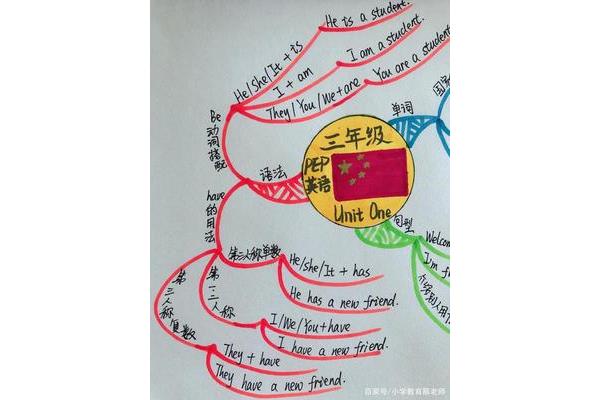 He is a student.
He/She/It + is
I am a student.
I + am
You are a student
They/You/We+are
Be动词搭配
语法
三年级
PEP
英语
Unit One
单词
国家
句型
Welcom
I'm fr
have的用法
第三人称单数
He/she/It + has
He has a new friend.
I/We/You+have
I have a new friend.
第三人称复数
They + have
They have a new friend.
百家号/小学教育蔡老师